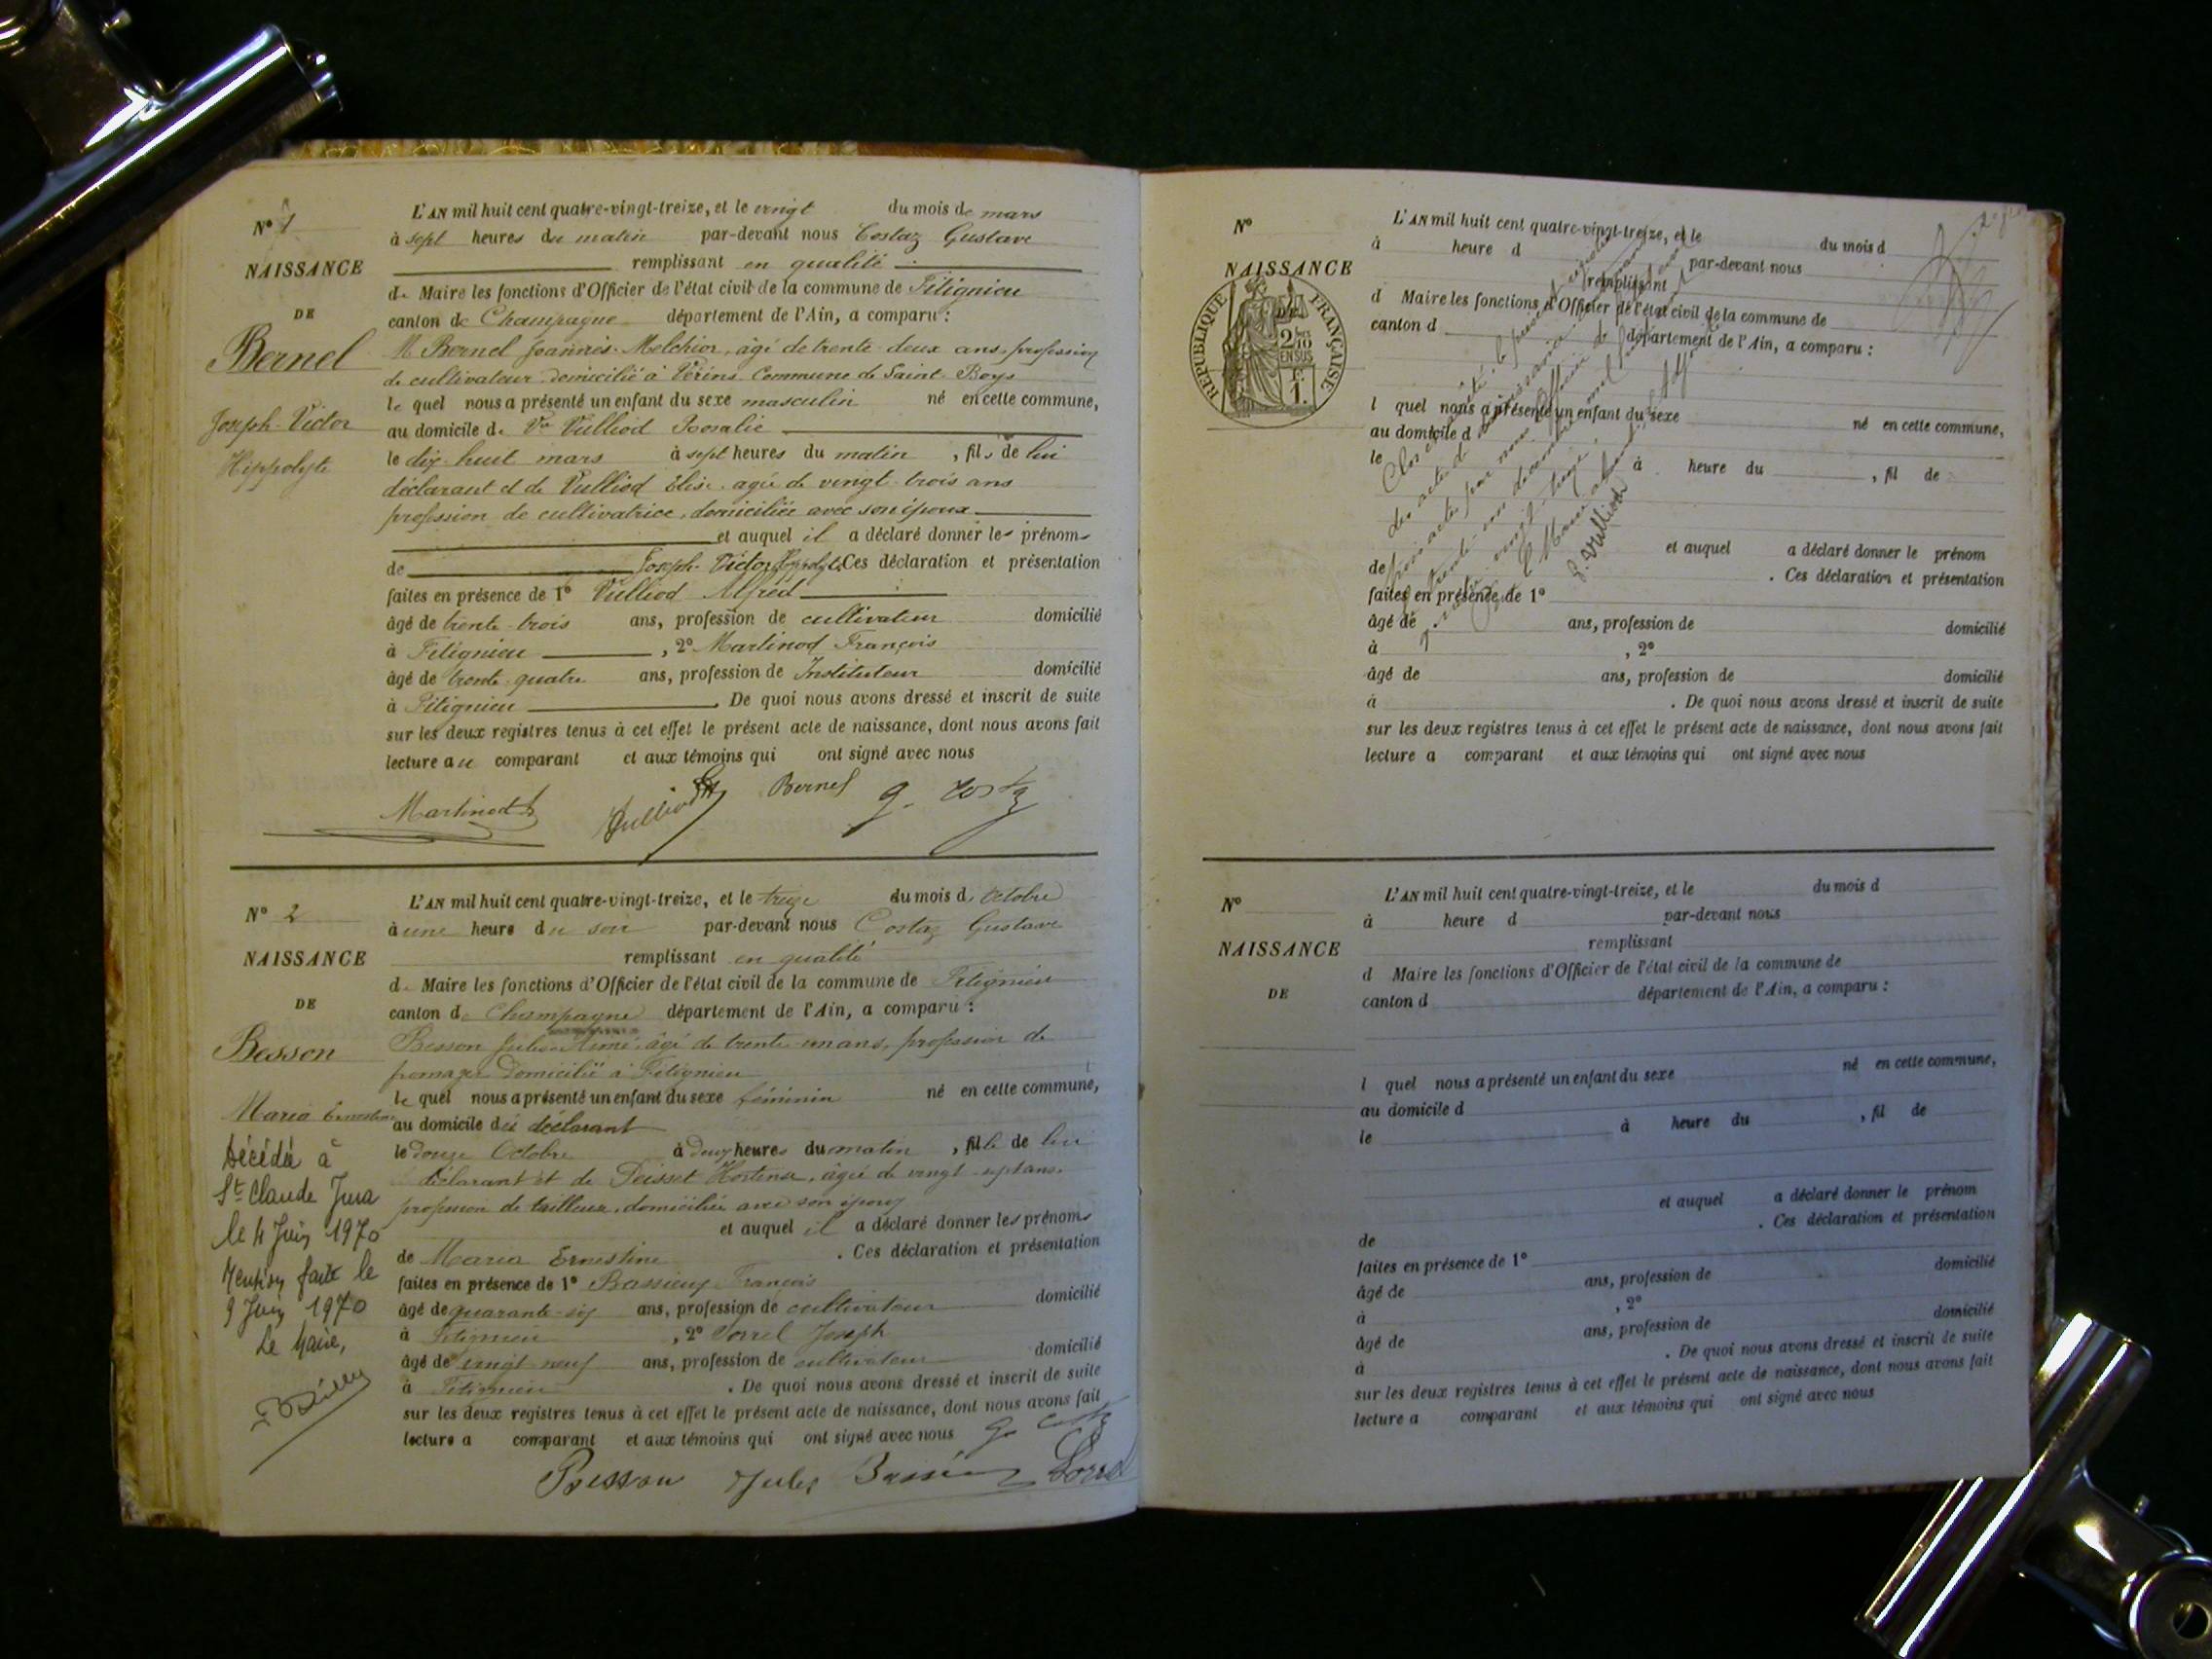 N° 1
NAISSANCE
DE
Bernel
Joseph-Victor
Hippolyte
L'AN mil huit cent quatre-vingt-treize, et le vingt du mois de mars
à sept heures du matin par-devant nous Costaz Gustave
remplissant en qualité
de Maire les fonctions d'Officier de l'état civil de la commune de Fitignieu
canton de Champagne département de l'Ain, a comparu :
M Bernel Joannès-Melchior, âgé de trente-deux ans, profession
de cultivateur domicilié à Vérins Commune de Saint-Boys
le quel nous a présenté un enfant du sexe masculin né en cette commune,
au domicile de Vve Vulliod Rosalie
le dix-huit mars à sept heures du matin, fils de lui
déclarant et de Vulliod Elise âgée de vingt-trois ans
profession de cultivatrice, domiciliée avec son époux
et auquel il a déclaré donner les prénoms
de Joseph-Victor Hippolyte Ces déclaration et présentation
faites en présence de 1° Vulliod Alfred
âgé de trente-trois ans, profession de cultivateur domicilié
à Fitignieu , 2° Martinod François
âgé de trente-quatre ans, profession de Instituteur domicilié
à Fitignieu . De quoi nous avons dressé et inscrit de suite
sur les deux registres tenus à cet effet le présent acte de naissance, dont nous avons fait
lecture au comparant et aux témoins qui ont signé avec nous
Martinod Vulliod Bernel g. costaz
N° 2
NAISSANCE
DE
Besson
Maria Ernestine
Décédée à
St Claude Jura
le 4 Juin 1970
Mention faite le
9 Juin 1970
Le Maire,
L'AN mil huit cent quatre-vingt-treize, et le treize du mois d'Octobre
à une heure du soir par-devant nous Costaz Gustave
remplissant en qualité
de Maire les fonctions d'Officier de l'état civil de la commune de Fitignieu
canton de Champagne département de l'Ain, a comparu :
Besson Jules Aimé, âgé de trente-un ans, profession de
fromager Domicilié à Fitignieu
le quel nous a présenté un enfant du sexe féminin né en cette commune,
au domicile du déclarant
le douze Octobre à Deux heures du matin , fille de lui
déclarant et de Peisset Hortense, âgée de vingt-sept ans
profession de tailleuse, domiciliée avec son époux
et auquel il a déclaré donner les prénoms
de Maria Ernestine . Ces déclaration et présentation
faites en présence de 1° Bassieux François
âgé de quarante-six ans, profession de cultivateur domicilié
à Fitignieu , 2° Lorrel Joseph
âgé de vingt-neuf ans, profession de cultivateur domicilié
à Fitignieu . De quoi nous avons dressé et inscrit de suite
sur les deux registres tenus à cet effet le présent acte de naissance, dont nous avons fait
lecture a comparant et aux témoins qui ont signé avec nous g. costaz
Besson Jules Bassieux Lorrel
N°
NAISSANCE
DE
RÉPUBLIQUE FRANÇAISE
2/10
EN SUS
1.
L'AN mil huit cent quatre-vingt-treize, et le du mois d
à heure d par-devant nous
remplissant
d Maire les fonctions d'Officier de l'état civil de la commune de
canton d département de l'Ain, a comparu :
l quel nous a présenté un enfant du sexe né en cette commune,
au domicile d
le à heure du , fil de
et auquel a déclaré donner le prénom
de . Ces déclaration et présentation
faites en présence de 1°
âgé de ans, profession de domicilié
à , 2°
âgé de ans, profession de domicilié
à . De quoi nous avons dressé et inscrit de suite
sur les deux registres tenus à cet effet le présent acte de naissance, dont nous avons fait
lecture a comparant et aux témoins qui ont signé avec nous
Clos et arrêté le présent registre
des actes de naissance
par nous Officier de
trente-un décembre mil huit cent
quatre-vingt-treize
Le Maire
Vulliod
N°
NAISSANCE
DE
L'AN mil huit cent quatre-vingt-treize, et le du mois d
à heure d par-devant nous
remplissant
d Maire les fonctions d'Officier de l'état civil de la commune de
canton d département de l'Ain, a comparu :
l quel nous a présenté un enfant du sexe né en cette commune,
au domicile d
le à heure du , fil de
et auquel a déclaré donner le prénom
de . Ces déclaration et présentation
faites en présence de 1°
âgé de ans, profession de domicilié
à , 2°
âgé de ans, profession de domicilié
à . De quoi nous avons dressé et inscrit de suite
sur les deux registres tenus à cet effet le présent acte de naissance, dont nous avons fait
lecture a comparant et aux témoins qui ont signé avec nous